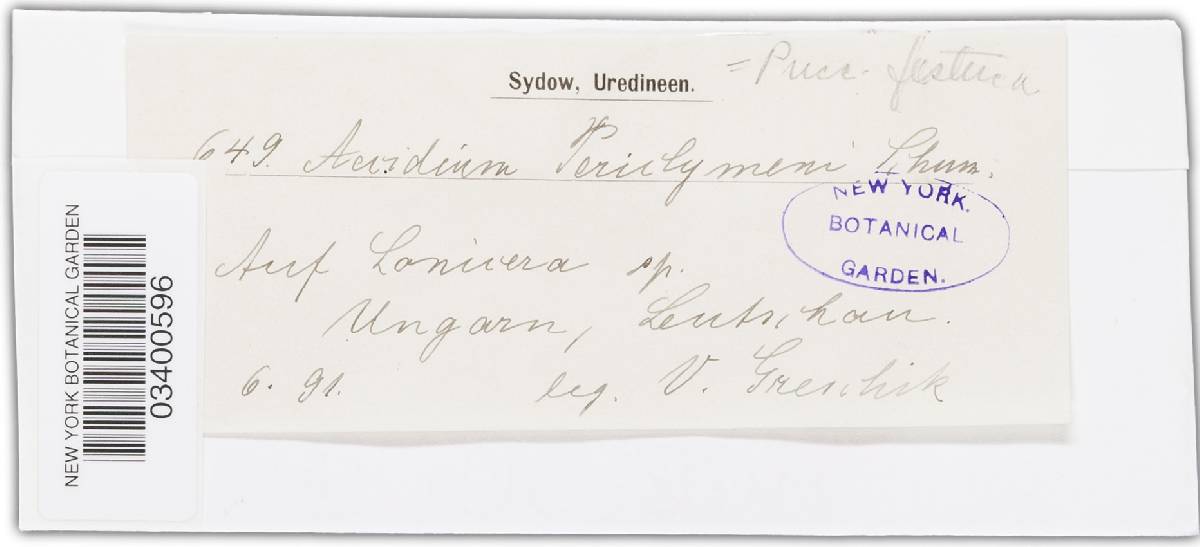 = Pucc. festuca
Sydow, Uredineen.
649. Aecidium Periclymeni Schum.
Auf Lonicera sp.
Ungarn, Leutschau.
6. 91. leg. V. Greschik
NEW YORK
BOTANICAL
GARDEN.
NEW YORK BOTANICAL GARDEN
03400596